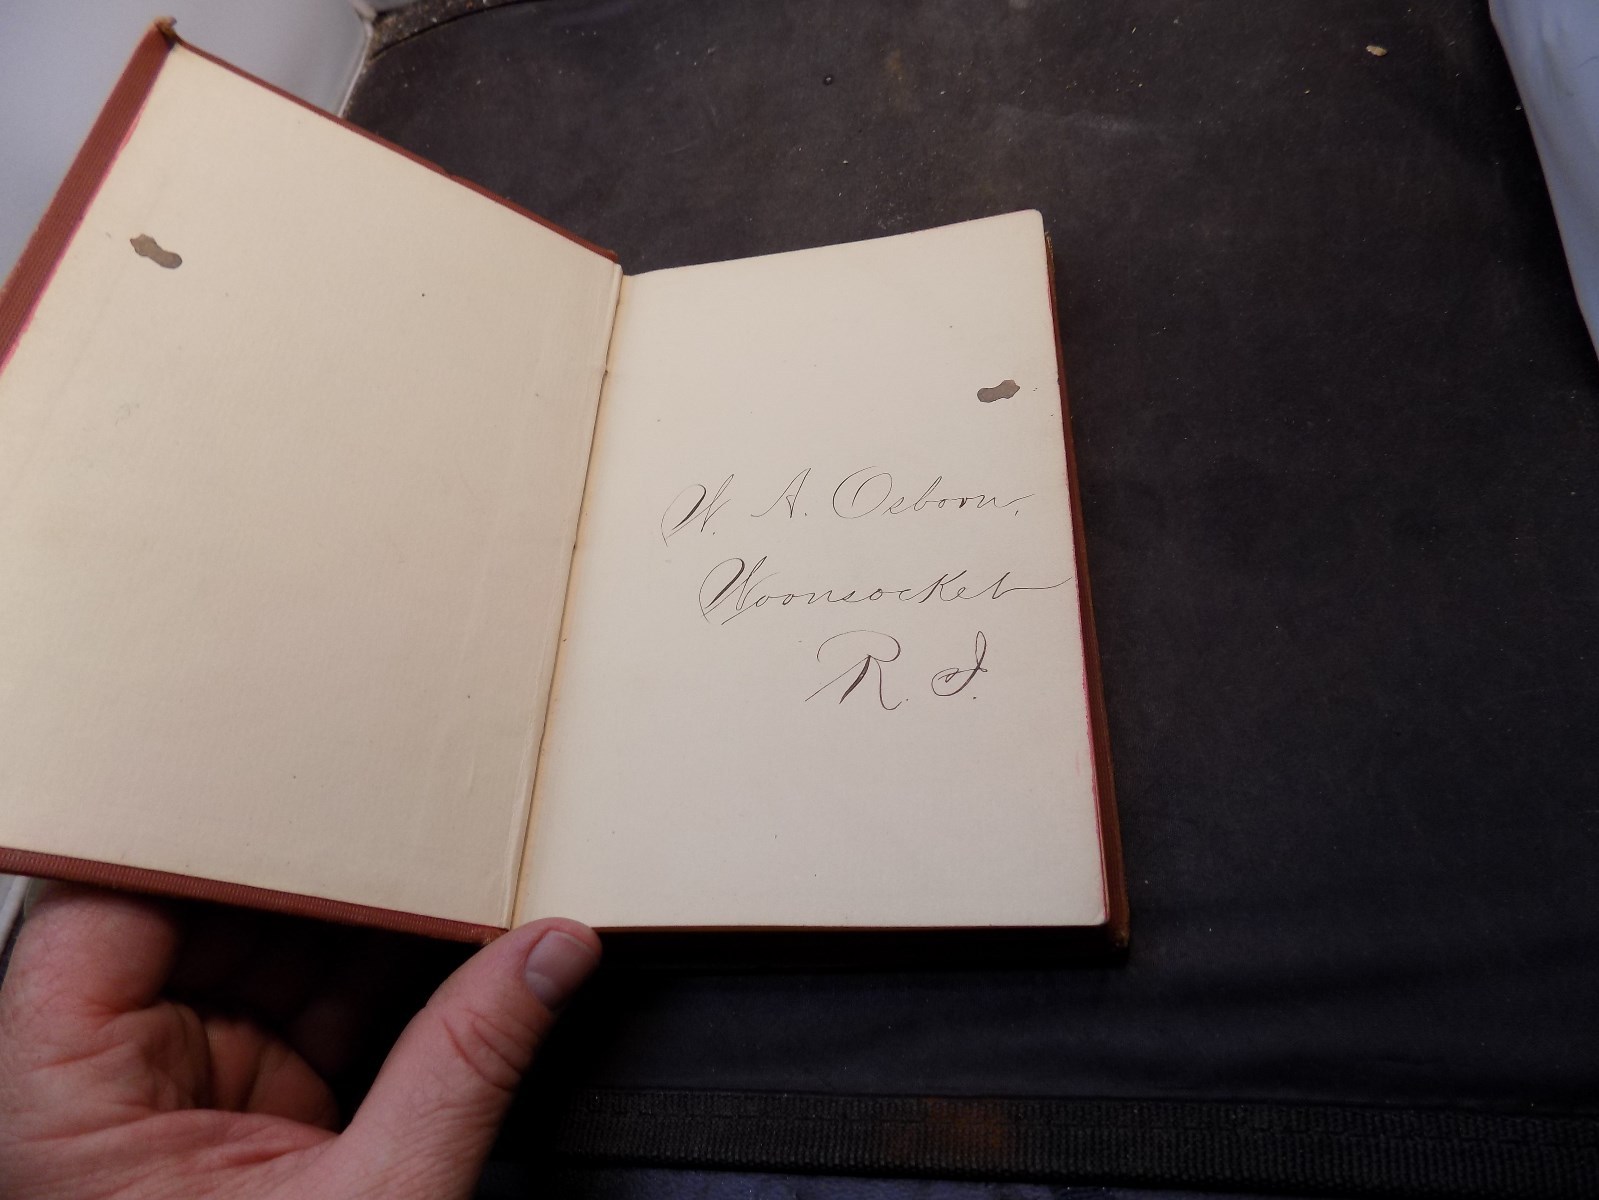 W. A. Osborn,
Woonsocket
R. I.